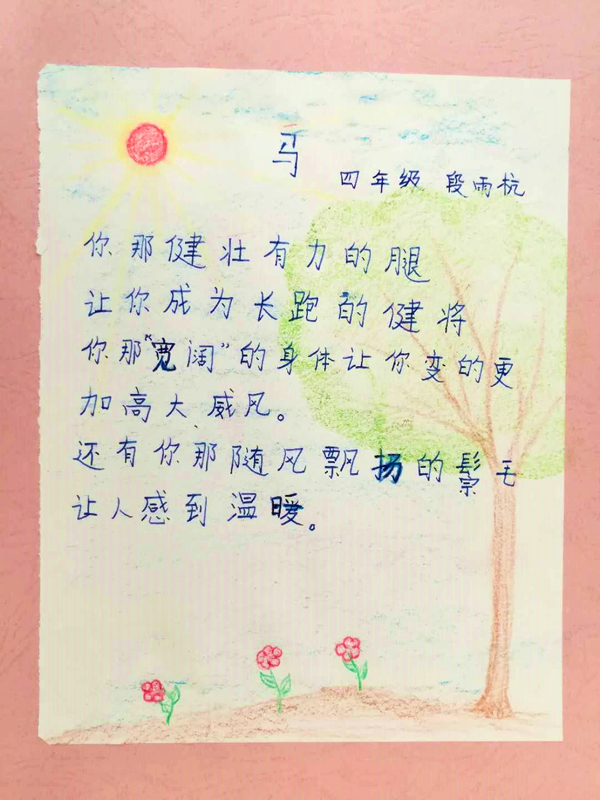 马
四年级 段雨杭
你那健壮有力的腿
让你成为长跑的健将
你那“宽阔”的身体让你变的更
加高大威风。
还有你那随风飘扬的鬃毛
让人感到温暖。